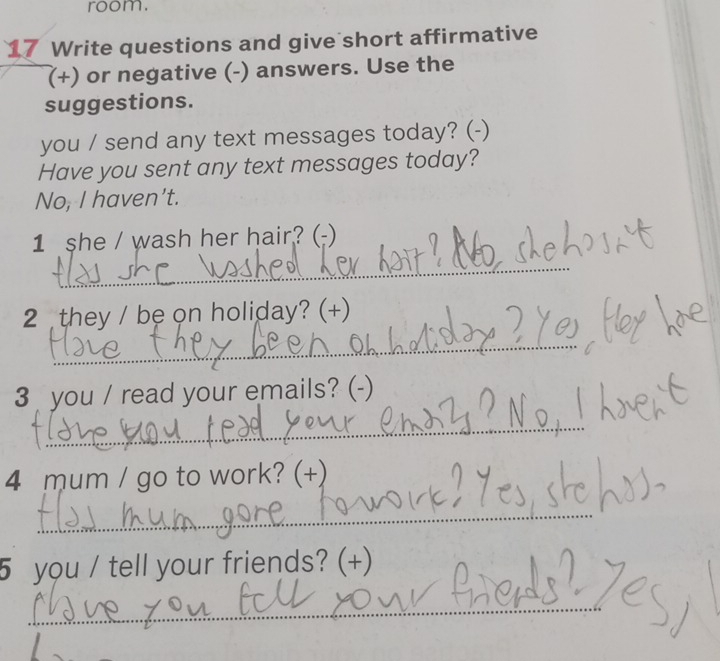 room.
17 Write questions and give short affirmative
(+) or negative (-) answers. Use the
suggestions.
you / send any text messages today? (-)
Have you sent any text messages today?
No, I haven't.
1 she / wash her hair? (-)
Has she washed her hair? No, she hasn't
2 they / be on holiday? (+)
Have they been on holiday? Yes, they have
3 you / read your emails? (-)
Have you read your emails? No, I haven't
4 mum / go to work? (+)
Has mum gone to work? Yes, she has.
5 you / tell your friends? (+)
Have you tell your friends? Yes, I